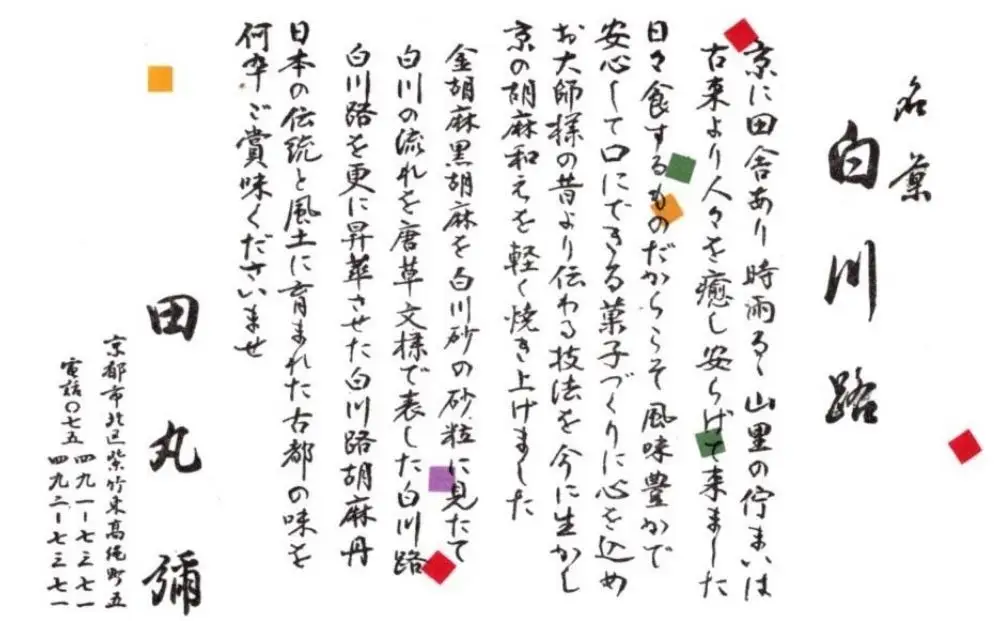 名菓
白川路
京に田舎あり時雨るゝ山里の佇まいは
古来より人々を癒し安らげて来ました
日々食するものだからこそ風味豊かで
安心して口にできる菓子づくりに心を込め
お大師様の昔より伝わる技法を今に生かし
京の胡麻和えを軽く焼き上げました
金胡麻黒胡麻を白川砂の砂粒に見たて
白川の流れを唐草文様で表した白川路
白川路を更に昇華させた白川路胡麻丹
日本の伝統と風土に育まれた古都の味を
何卒ご賞味くださいませ
田丸彌
京都市北区紫竹東高縄町五
電話〇七五 四九一-七三七一
四九二-七三七一